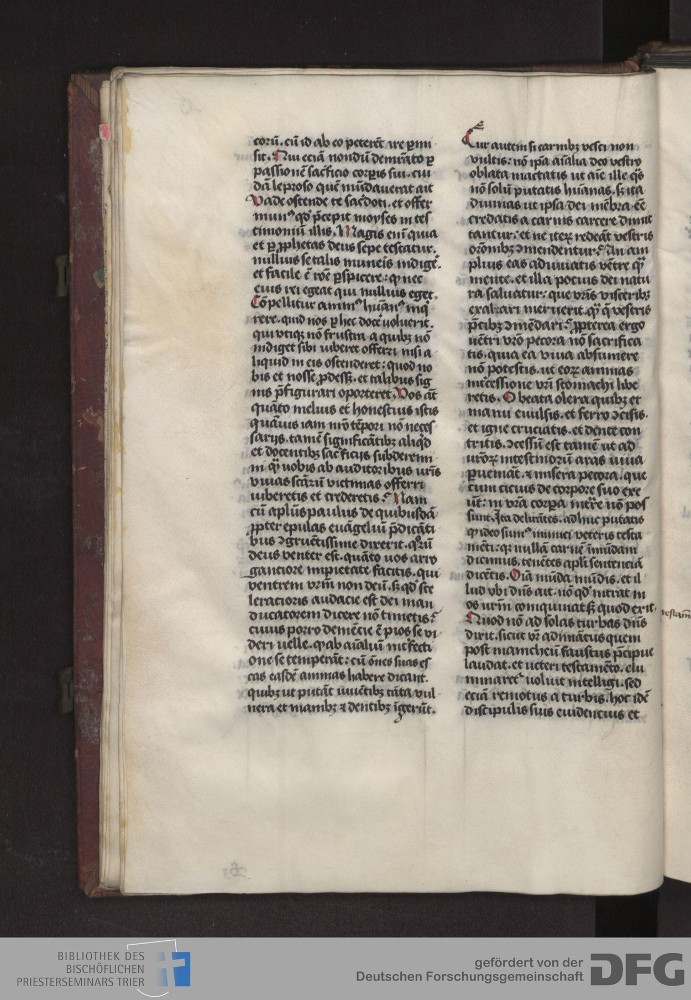 corū. cū id ab eo peterēt ire pmi
sit. Qui eciā nondū demōstrato p
passionē sacrificio corpis sui. cui
dā leproso quē mūdauerat ait
Vade ostende te sacdoti. et offer
munꝰ qd p̄cepit moyses in tes
timoniū illis. Magis eni quia
et p p̄phetas deus sepe testatur.
nullius se talis muneris indigē.
et facile ē rōe pspicere: qꝛ nec
eius rei egeat qui nullius eget.
Cōpellitur animꝰ humanꝰ inq̄
rere. quid nos p hec docē voluerit.
qui vtiqꝫ nō frustra a quibꝫ nō
indiget sibi iuberet offerri nisi a
liquid in eis ostenderet: quod no
bis et nosse pdesset. et talibus sig
nis p̄figurari oporteret. Vos āt
quāto melius et honestius istis
quāuis iam nr̄o tēpori nō neces
sarijs. tamē significātibꝫ aliqd
et docentibꝫ sacrificijs subderemi
ni q̄ vobis ab auditoribus vr̄is
viuas escarū victimas offerri
iuberetis et crederetis: Nam
cū aplūs paulus de quibusdā
ꝓpter epulas euāgeliū p̄dicāti
bus ꝯgruētissime dixerit. qꝛū
deus venter est. quāto vos arro
ganciore impietate facitis. qui
ventrem vrm̄ non deū. sꝫ qd sce
leracioris audacie est dei man
ducatorem dicere nō timetis:
cuius porro demēcie ē pios se vi
deri velle. qꝛ ab aīaliū infecti
one se temperāt: cū ōnes suas es
cas easdē animas habere dicant.
quibꝫ vt putāt viuētibꝫ tāta vul
nera et manibꝫ ⁊ dentibꝫ īgerūt.
Cur autem si carnibꝫ vesci non
vultis: nō ipa aīalia deo vestro
oblata mactatis ut aīe ille qs̄
nō solū putatis huanas. sꝫ ita
diuinas ut ipsa dei mēbra eē
credatis a carnis carcere dimit
tantur: et ne iteꝝ redeāt vestris
orōnibꝫ ꝯmendentur: An am
plius eas adiuuatis vētre q̄
mente. et illa pocius dei natu
ra saluatur: que vr̄is visceribꝫ
exalari meruerit. q̄ q̄ vestris
p̄cibꝫ ꝯmēdari: ꝓpterea ergo
uētri vr̄o pecora nō sacrifica
tis. quia ea viua absumere
nō potestis. ut eoꝝ animas
intcessione vr̄i stomachi libe
retis. O beata olera quibꝫ et
manu euulsis. et ferro ꝯcisis.
et igne cruciatis. et dente con
tritis. ꝯcessū est tamē ut ad
vr̄oꝝ intestinorū aras uiua
pueniāt. ⁊ misera pecora. que
cum cicius de corpore suo exe
ūt: in vr̄a corpa intre nō pos
sunt. Ita delirātes. adhuc putatis
ꝙ ideo simꝰ inimici veteris testa
mēti: qꝛ nullā carnē īmūdam
dicimus. tenētes apli sentenciā
dicētis. Oīa mūda mūdis. et il
lud vbi dn̄s ait. nō qd intrat in
os vr̄m coinquinat sꝫ quod exit.
Quod nō ad solas turbas dn̄s
dixit. sicut vr̄ adimātus quem
post manicheū faustus p̄cipue
laudat. et ueteri testamēto. elu
minaretʳ voluit intelligi. sed
eciā remotius a turbis. hoc idē
discipulis suis euidencius et
testam
BIBLIOTHEK DES
BISCHÖFLICHEN
PRIESTERSEMINARS TRIER
gefördert von der
Deutschen Forschungsgemeinschaft
DFG